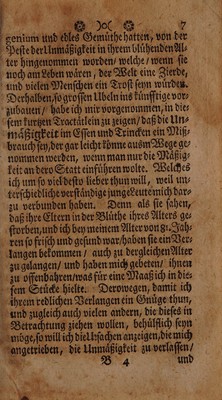 7
genium und edles Gemüthe hatten, von der
Peste der Unmäßigkeit in ihrem blühenden Al-
ter hingenommen worden/ welche/ wenn sie
noch am Leben wären, der Welt eine Zierde,
und vielen Menschen ein Trost seyn würden.
Derhalben, so grossen Ubeln ins künfftige vor-
zubauen/ habe ich mir vorgenommen, in die-
sem kurtzen Tractätlein zu zeigen/ daß die Un-
mäßigkeit im Essen und Trincken ein Miß-
brauch sey, der gar leicht könne aus'm Wege ge-
nommen werden, wenn man nur die Mäßig-
keit an dero Statt einführen wolte. Welches
ich um so viel desto lieber thun will, weil un-
terschiedliche verständige junge Leute mich dar-
zu verbunden haben. Denn als sie sahen,
daß ihre Eltern in der Blüthe ihres Alters ge-
storben, und ich bey meinem Alter von 81. Jah-
ren so frisch und gesund war/ haben sie ein Ver-
langen bekommen/ auch zu dergleichen Alter
zu gelangen/ und haben mich gebeten/ ihnen
zu offenbahren/ was für eine Maaß ich in die-
sem Stücke hielte. Derowegen, damit ich
ihrem redlichen Verlangen ein Gnüge thun,
und zugleich auch vielen andern, die dieses in
Betrachtung ziehen wollen, behülflich seyn
möge, so will ich die Ursachen anzeigen, die mich
angetrieben, die Unmäßigkeit zu verlassen/
B 4 und